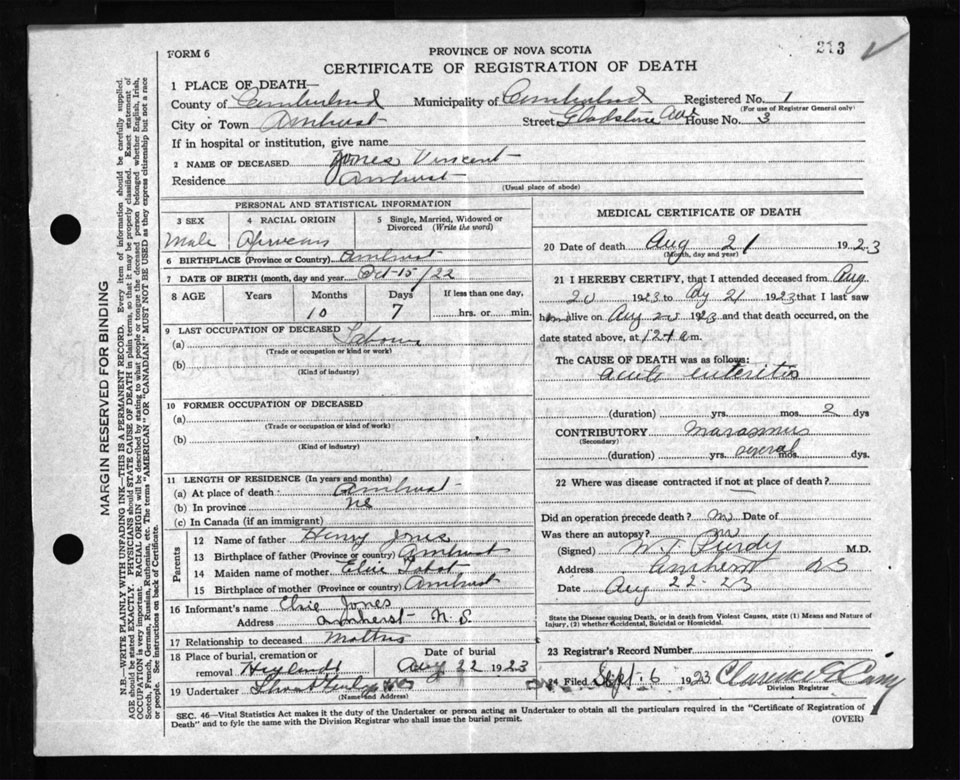 FORM 6
PROVINCE OF NOVA SCOTIA
213
CERTIFICATE OF REGISTRATION OF DEATH
1 PLACE OF DEATH—
County of Cumberland Municipality of Cumberland Registered No. 1
(For use of Registrar General only)
City or Town Amherst Street Gladstone Ave House No. 3
If in hospital or institution, give name
2 NAME OF DECEASED Jones Vincent
Residence Amherst
(Usual place of abode)
PERSONAL AND STATISTICAL INFORMATION
3 SEX 4 RACIAL ORIGIN 5 Single, Married, Widowed or Divorced (Write the word)
Male African
6 BIRTHPLACE (Province or Country) Amherst
7 DATE OF BIRTH (month, day and year) Oct-15/22
8 AGE Years Months Days If less than one day,
10 7 hrs. or min.
9 LAST OCCUPATION OF DECEASED
(a) Labourer
(Trade or occupation or kind or work)
(b)
(Kind of industry)
10 FORMER OCCUPATION OF DECEASED
(a)
(Trade or occupation or kind of work)
(b)
(Kind of industry)
11 LENGTH OF RESIDENCE (In years and months)
(a) At place of death: Amherst
(b) In province NS
(c) In Canada (if an immigrant)
Parents
12 Name of father Henry Jones
13 Birthplace of father (Province or country) Amherst
14 Maiden name of mother Elsie
15 Birthplace of mother (Province or country) Amherst
16 Informant's name Elsie Jones
Address Amherst N.S.
17 Relationship to deceased Mother
18 Place of burial, cremation or removal Date of burial
Aug 22 1923
19 Undertaker
(Name and Address)
MEDICAL CERTIFICATE OF DEATH
20 Date of death Aug 21 1923
(Month, day and year)
21 I HEREBY CERTIFY, that I attended deceased from Aug
20 1923 to Ag 21 1923 that I last saw
him alive on Aug 20 1923 and that death occurred, on
date stated above, at 12 + a m.
The CAUSE OF DEATH was as follows:
acute enteritis
(duration) yrs. mos. 2 dys
CONTRIBUTORY Marasmus
(Secondary)
(duration) yrs. several mos. dys.
22 Where was disease contracted if not at place of death?
Did an operation precede death? no Date of
Was there an autopsy? no
(Signed) W. T. Purdy M.D.
Address Amherst NS
Date Aug 22-23
State the Disease causing Death, or in death from Violent Causes, state (1) Means and Nature of
Injury, (2) whether Accidental, Suicidal or Homicidal.
23 Registrar's Record Number
24 Filed Sept. 6 1923 Clarence
Division Registrar
SEC. 46—Vital Statistics Act makes it the duty of the Undertaker or person acting as Undertaker to obtain all the particulars required in the "Certificate of Registration of
Death" and to fyle the same with the Division Registrar who shall issue the burial permit.
(OVER)
MARGIN RESERVED FOR BINDING
N.B.—WRITE PLAINLY WITH UNFADING INK—THIS IS A PERMANENT RECORD. Every item of information should be carefully supplied.
AGE should be stated EXACTLY. PHYSICIANS should STATE CAUSE OF DEATH in plain terms, so that it may be properly classified. Exact statement of
OCCUPATION is very important. RACIAL ORIGIN will be described by stating to what people or tongue the deceased person belonged whether English, Irish,
Scotch, French, German, Russian, Ruthenian, etc. The terms "AMERICAN" OR "CANADIAN" MUST NOT BE USED as they express citizenship but not a race
or people. See instructions on back of Certificate.